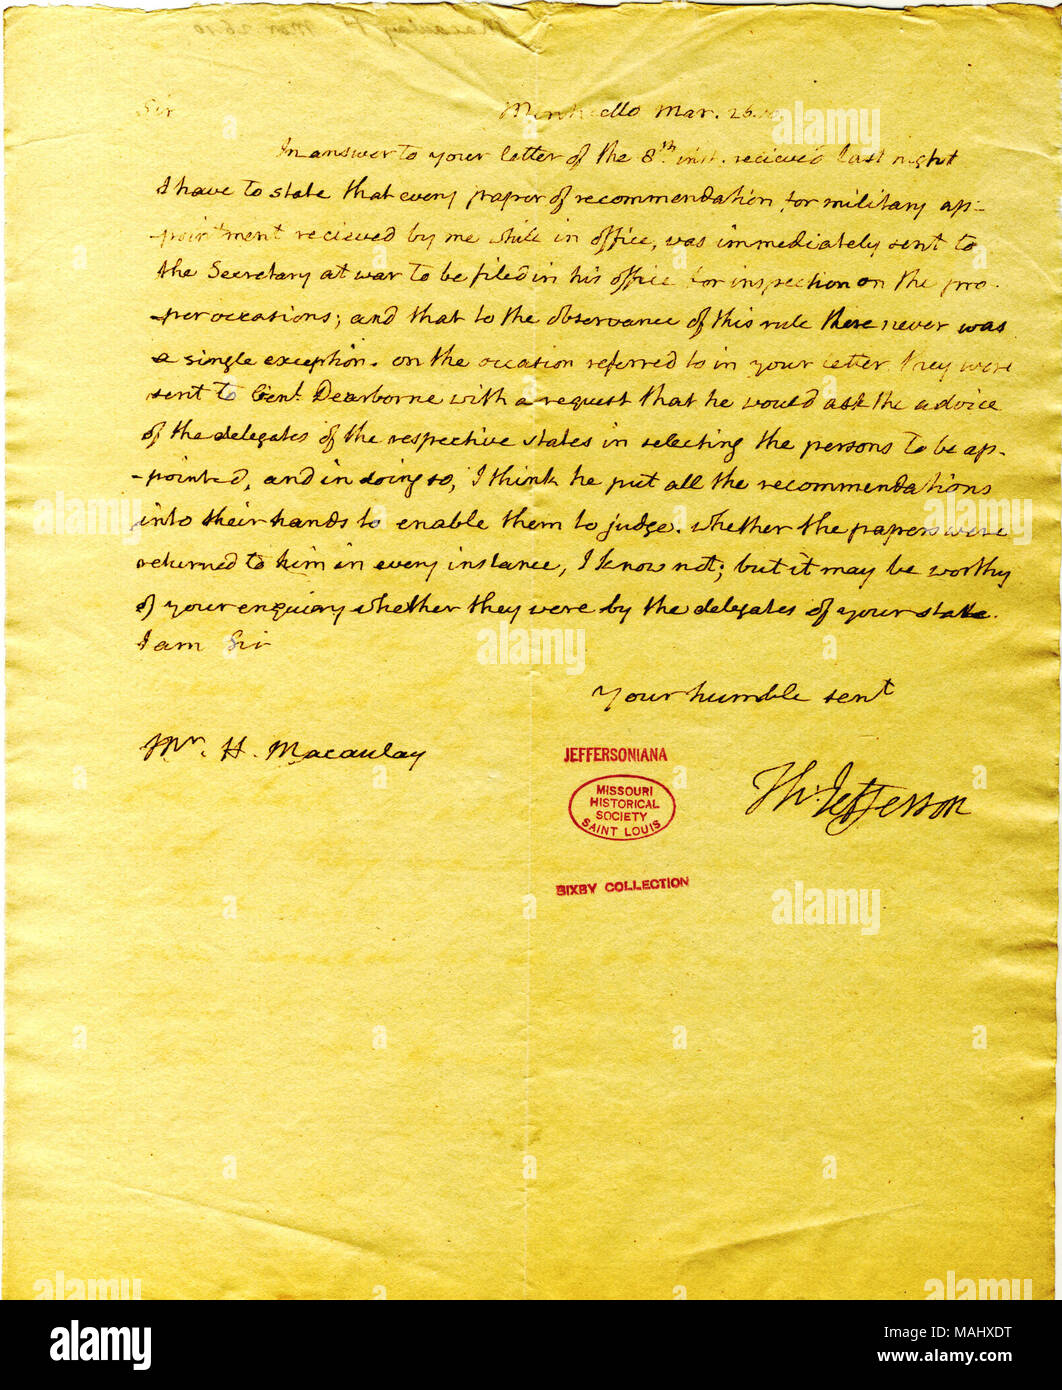 Sir Monticello Mar. 26. 10.
In answer to your letter of the 8th inst. recieved last night
I have to state that every paper of recommendation for military ap-
-pointment recieved by me while in office, was immediately sent to
the Secretary at war to be filed in his office for inspection on the pro-
-per occasions; and that to the observance of this rule there never was
a single exception. on the occasion referred to in your letter they were
sent to Genl. Dearborne with a request that he would ask the advice
of the delegates of the respective states in selecting the persons to be ap-
-pointed, and in doing so, I think he put all the recommendations
into their hands to enable them to judge. whether the papers were
returned to him in every instance, I know not; but it may be worthy
of your enquiry whether they were by the delegates of your state.
I am Sir
Your humble servt
Mr. H. Macaulay
Th: Jefferson
JEFFERSONIANA
MISSOURI
HISTORICAL
SOCIETY
SAINT LOUIS
BIXBY COLLECTION
alamy
Image ID: MAHXDT
www.alamy.com